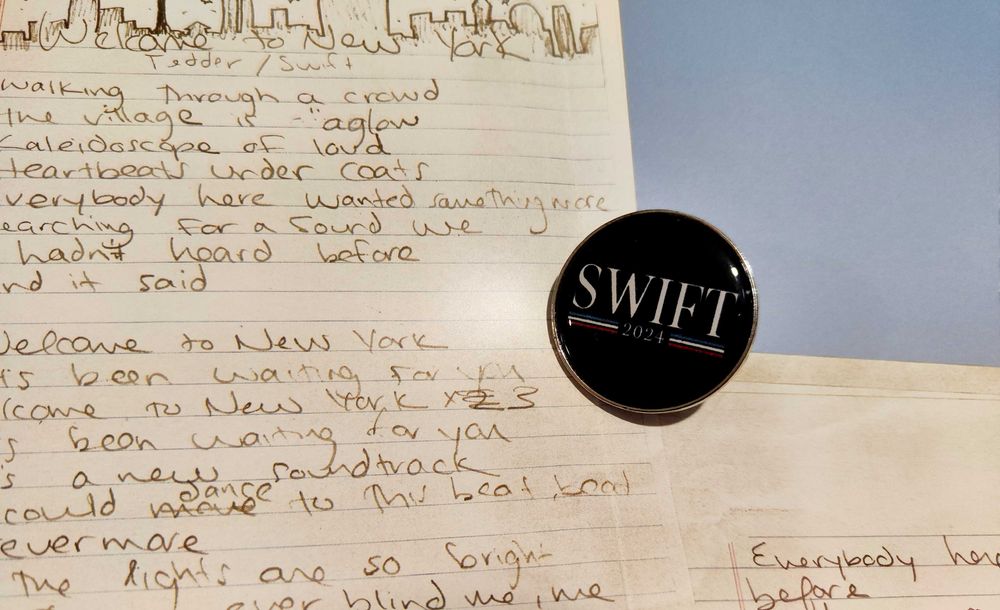 Welcome to New York
Tedder / Swift
walking through a crowd
the village is aglow
kaleidoscope of loud
Heartbeats under coats
verybody here wanted something more
earching for a sound we
hadn't heard before
nd it said
Welcome to New York
t's been waiting for you
lcome to New York x3
s been waiting for you
s a new soundtrack
dance
could move to this beat, beat
evermore
The lights are so bright
ever blind me, me
SWIFT
2024
Everybody here
before